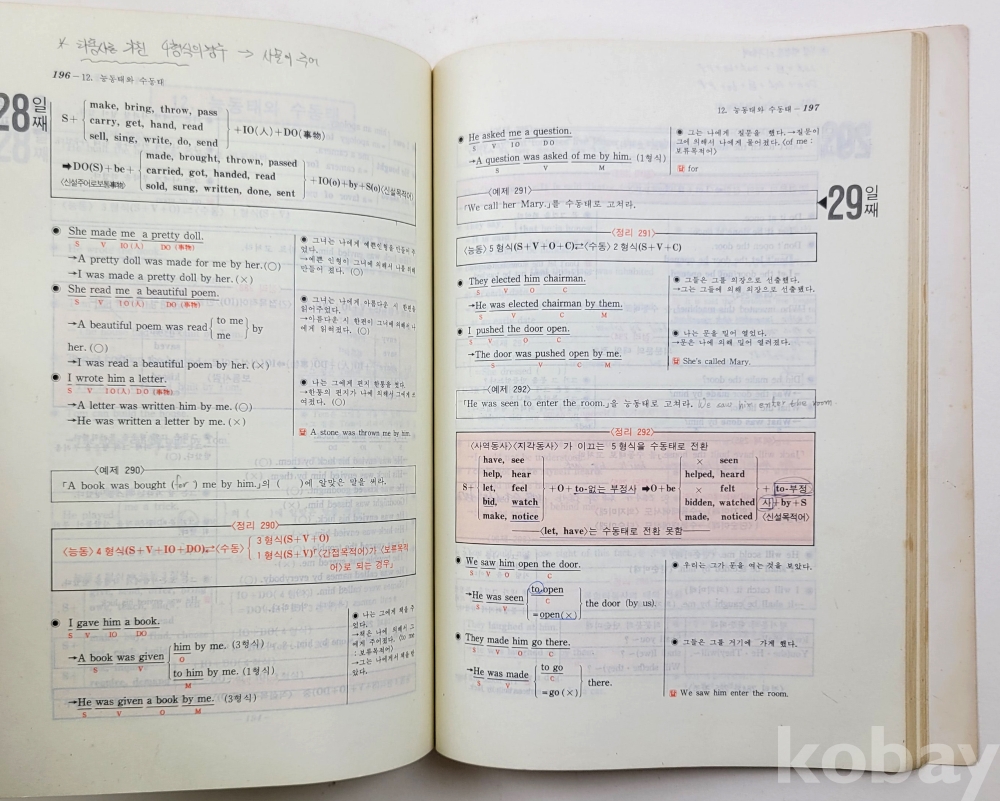 * 다음사능 거친 4형식의 경우 → 사물이 주어
196-12. 능동태와 수동태
28일째
make, bring, throw, pass
S+ carry, get, hand, read +IO(人)+DO(事物)
sell, sing, write, do, send
made, brought, thrown, passed
➡DO(S)+be+ carried, got, handed, read +IO(o)+by+S(o)〈신설목적어〉
〈신설주어로보통事物〉 sold, sung, written, done, sent
● She made me a pretty doll.
S V IO(人) DO(事物)
→A pretty doll was made for me by her.(○)
→I was made a pretty doll by her.(×)
● 그녀는 나에게 예쁜인형을 만들어 주었다.
→예쁜 인형이 그녀에 의해서 나를 위해 만들어 졌다. (○)
● She read me a beautiful poem.
S V IO(人) DO(事物)
→A beautiful poem was read { to me / me } by
her.(○)
→I was read a beautiful poem by her.(×)
● 그녀는 나에게 아름다운 시 한편을 읽어주었다.
→아름다운 시 한편이 그녀에 의해서 나에게 읽혀졌다. (○)
● I wrote him a letter.
S V IO(人) DO(事物)
→A letter was written him by me.(○)
→He was written a letter by me.(×)
● 나는 그에게 편지 한통을 썼다.
→한통의 편지가 나에 의해서 그에게 쓰여졌다. (○)
답 A stone was thrown me by him.
〈예제 290〉
「A book was bought (for) me by him.」의 ( )에 알맞은 말을 써라.
〈정리 290〉
〈능동〉4형식(S+V+IO+DO)⇄〈수동〉 3형식(S+V+O)
1형식(S+V)「〈간접목적어〉가 〈보류목적어〉로 되는 경우」
● I gave him a book.
S V IO DO
→A book was given him by me. (3형식)
S V O
to him by me. (1형식)
M
→He was given a book by me. (3형식)
S V O M
● 나는 그에게 책을 주었다.
→책은 나에 의해서 그에게 주어졌다. (to me : 보류목적어)
→그는 나에게서 책을 받았다.
12. 능동태와 수동태-197
● He asked me a question.
S V IO DO
→A question was asked of me by him. (1형식)
S V M
● 그는 나에게 질문을 했다.→질문이 그에 의해서 나에게 물어졌다. 〈of me : 보류목적어〉
답 for
〈예제 291〉
「We call her Mary.」를 수동태로 고쳐라.
29일째
〈정리 291〉
〈능동〉5형식(S+V+O+C)⇄〈수동〉2형식(S+V+C)
● They elected him chairman.
S V O C
→He was elected chairman by them.
S V C M
● 그들은 그를 의장으로 선출했다.
→그는 그들에 의해 의장으로 선출됐다.
● I pushed the door open.
S V O C
→The door was pushed open by me.
S V C M
● 나는 문을 밀어 열었다.
→문은 나에 의해 밀어 열려졌다.
답 She's called Mary.
〈예제 292〉
「He was seen to enter the room.」을 능동태로 고쳐라. We saw him enter the room.
〈정리 292〉
〈사역동사〉〈지각동사〉가 이끄는 5형식을 수동태로 전환
have, see × seen
help, hear helped, heard
S+ let, feel +O+to-없는 부정사 ➡O+be × felt + to-부정
bid, watch bidden, watched 사+by+S
make, notice made, noticed 〈신설목적어〉
〈let, have〉는 수동태로 전환 못함
● We saw him open the door.
S V O C
→He was seen to open the door (by us).
S V C
=open(×)
● 우리는 그가 문을 여는 것을 보았다.
● They made him go there.
S V O C
→He was made to go there.
S V C
=go(×)
● 그들은 그를 거기에 가게 했다.
답 We saw him enter the room.
kobay